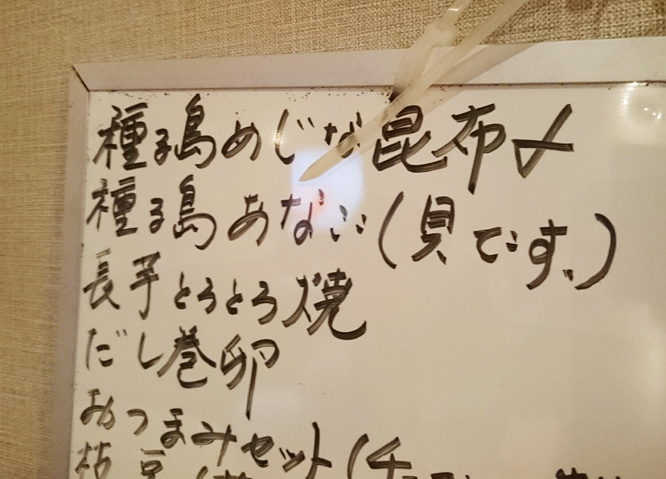 種子島めじな昆布〆
種子島あなご(貝です。)
長芋とろとろ焼
だし巻卵
おつまみセット(チ
枝豆